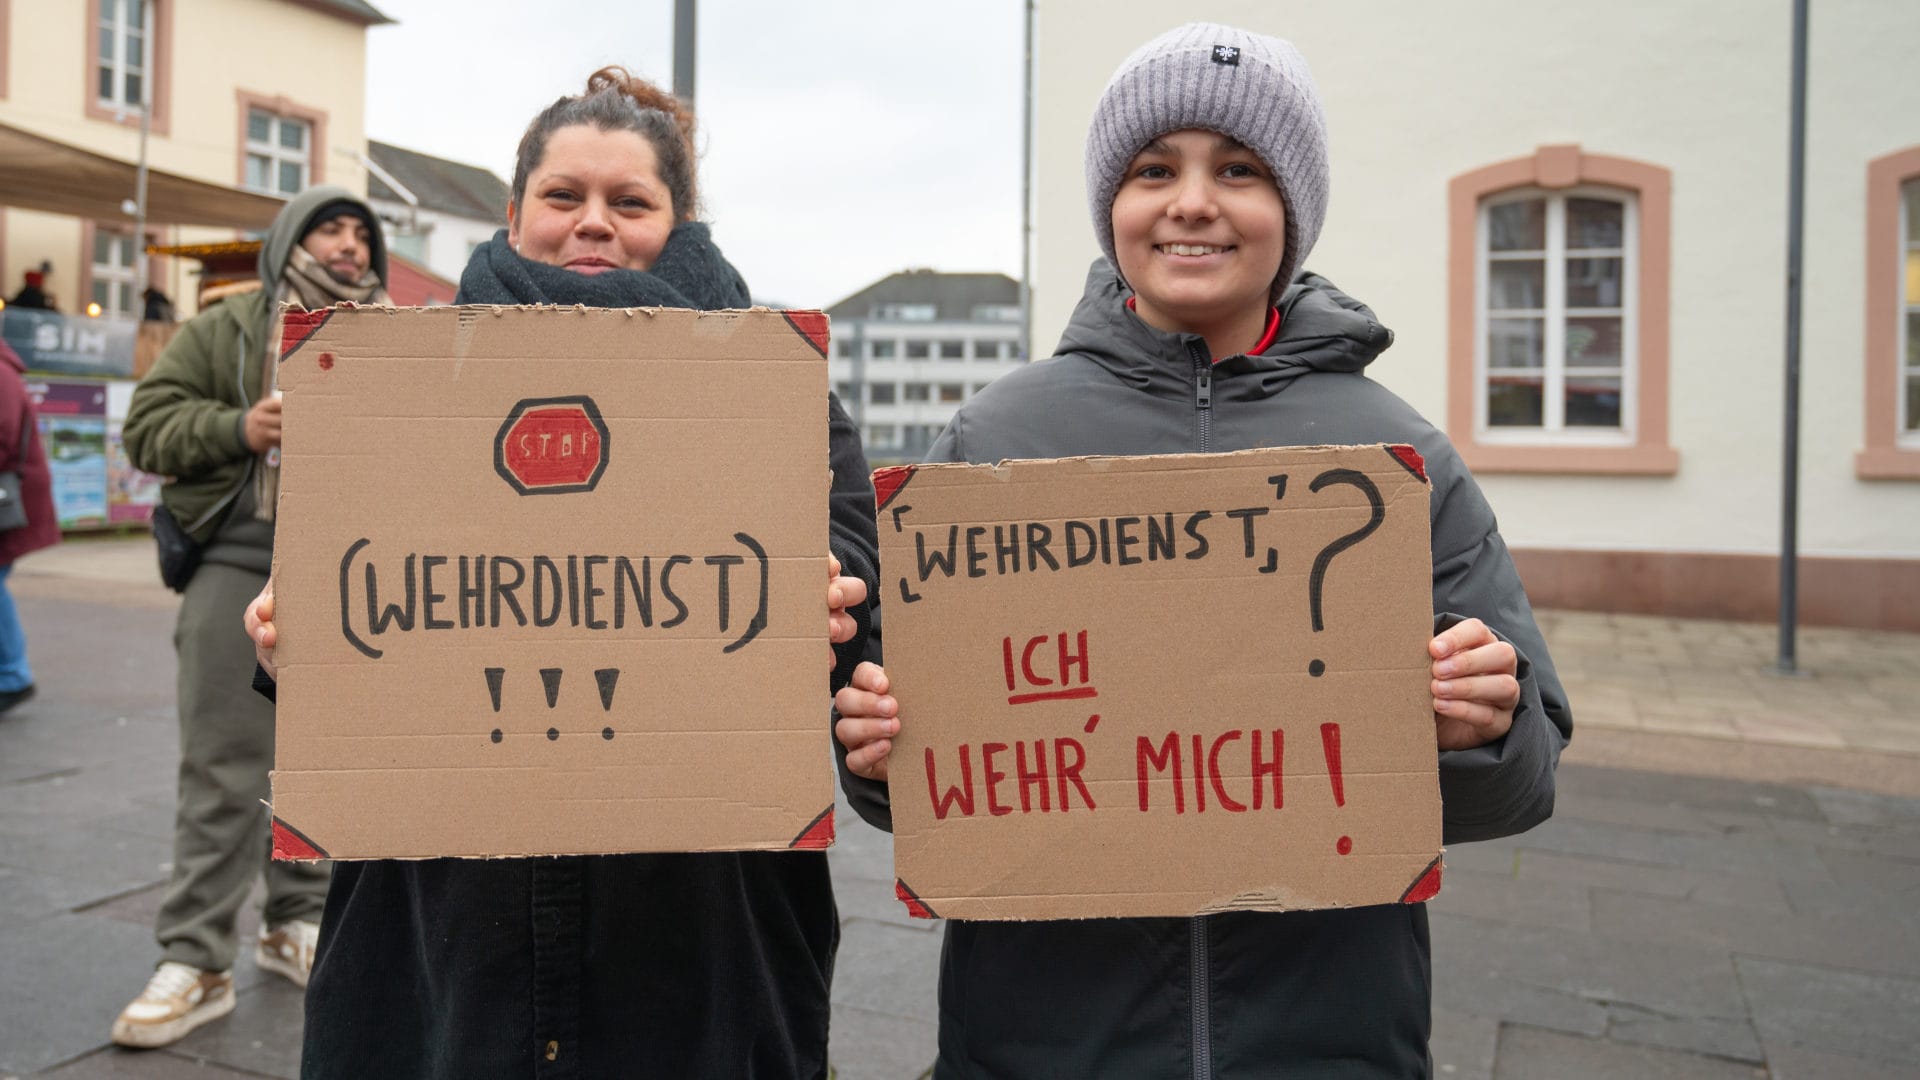 STOP
(WEHRDIENST)
!!!
「WEHRDIENST」?
ICH
WEHR' MICH!